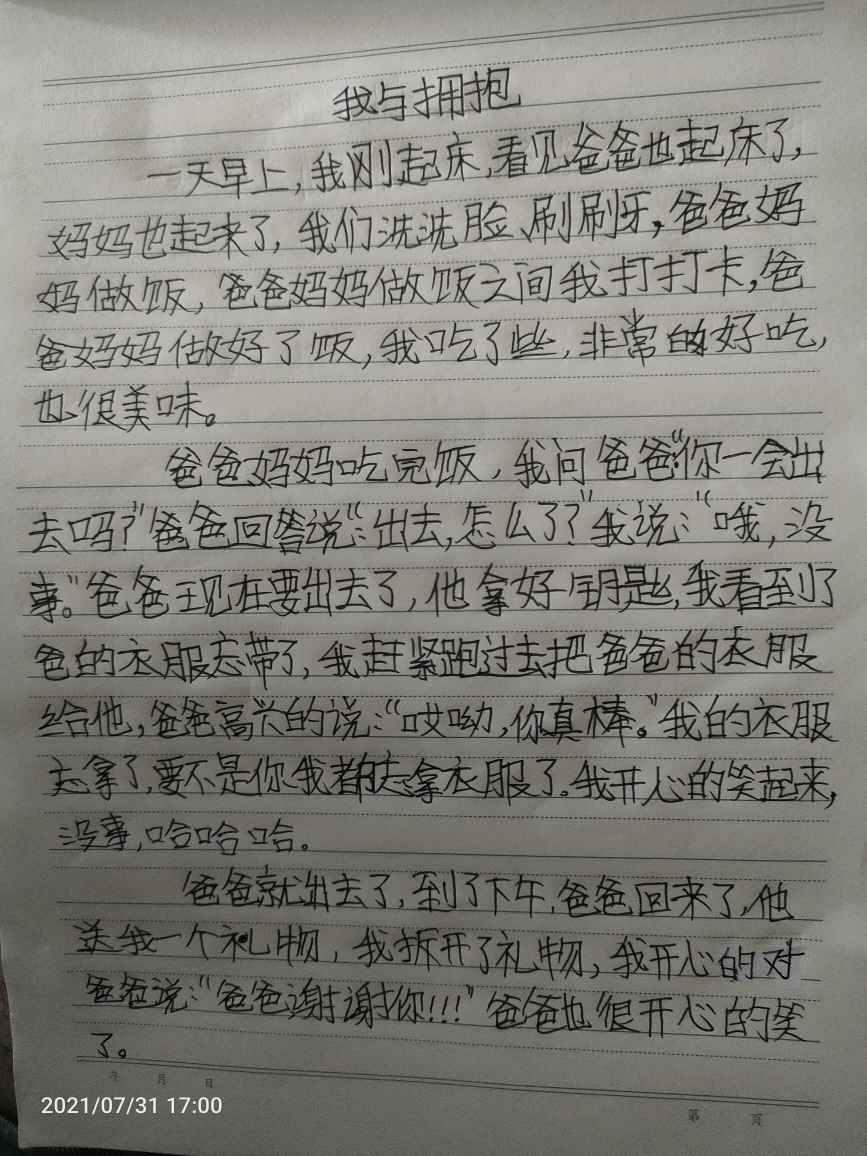 我与拥抱
一天早上，我刚起床，看见爸爸也起床了，
妈妈也起来了，我们洗洗脸、刷刷牙，爸爸妈
妈做饭，爸爸妈妈做饭之间我打打卡，爸
爸妈妈做好了饭，我吃了些，非常的好吃，
也很美味。
爸爸妈妈吃完饭，我问爸爸“你一会出
去吗？”爸爸回答说“：出去，怎么了？”我说：“哦，没
事。”爸爸现在要出去了，他拿好钥匙，我看到了
爸的衣服忘带了，我赶紧跑过去把爸爸的衣服
给他，爸爸高兴的说：“哎呦，你真棒。”我的衣服
忘拿了，要不是你我都忘拿衣服了。我开心的笑起来，
没事，哈哈哈。
爸爸就出去了，到了下午，爸爸回来了，他
送我一个礼物，我拆开了礼物，我开心的对
爸爸说：“爸爸谢谢你!!!”爸爸也很开心的笑
了。
年 月 日
2021/07/31 17:00
第 页